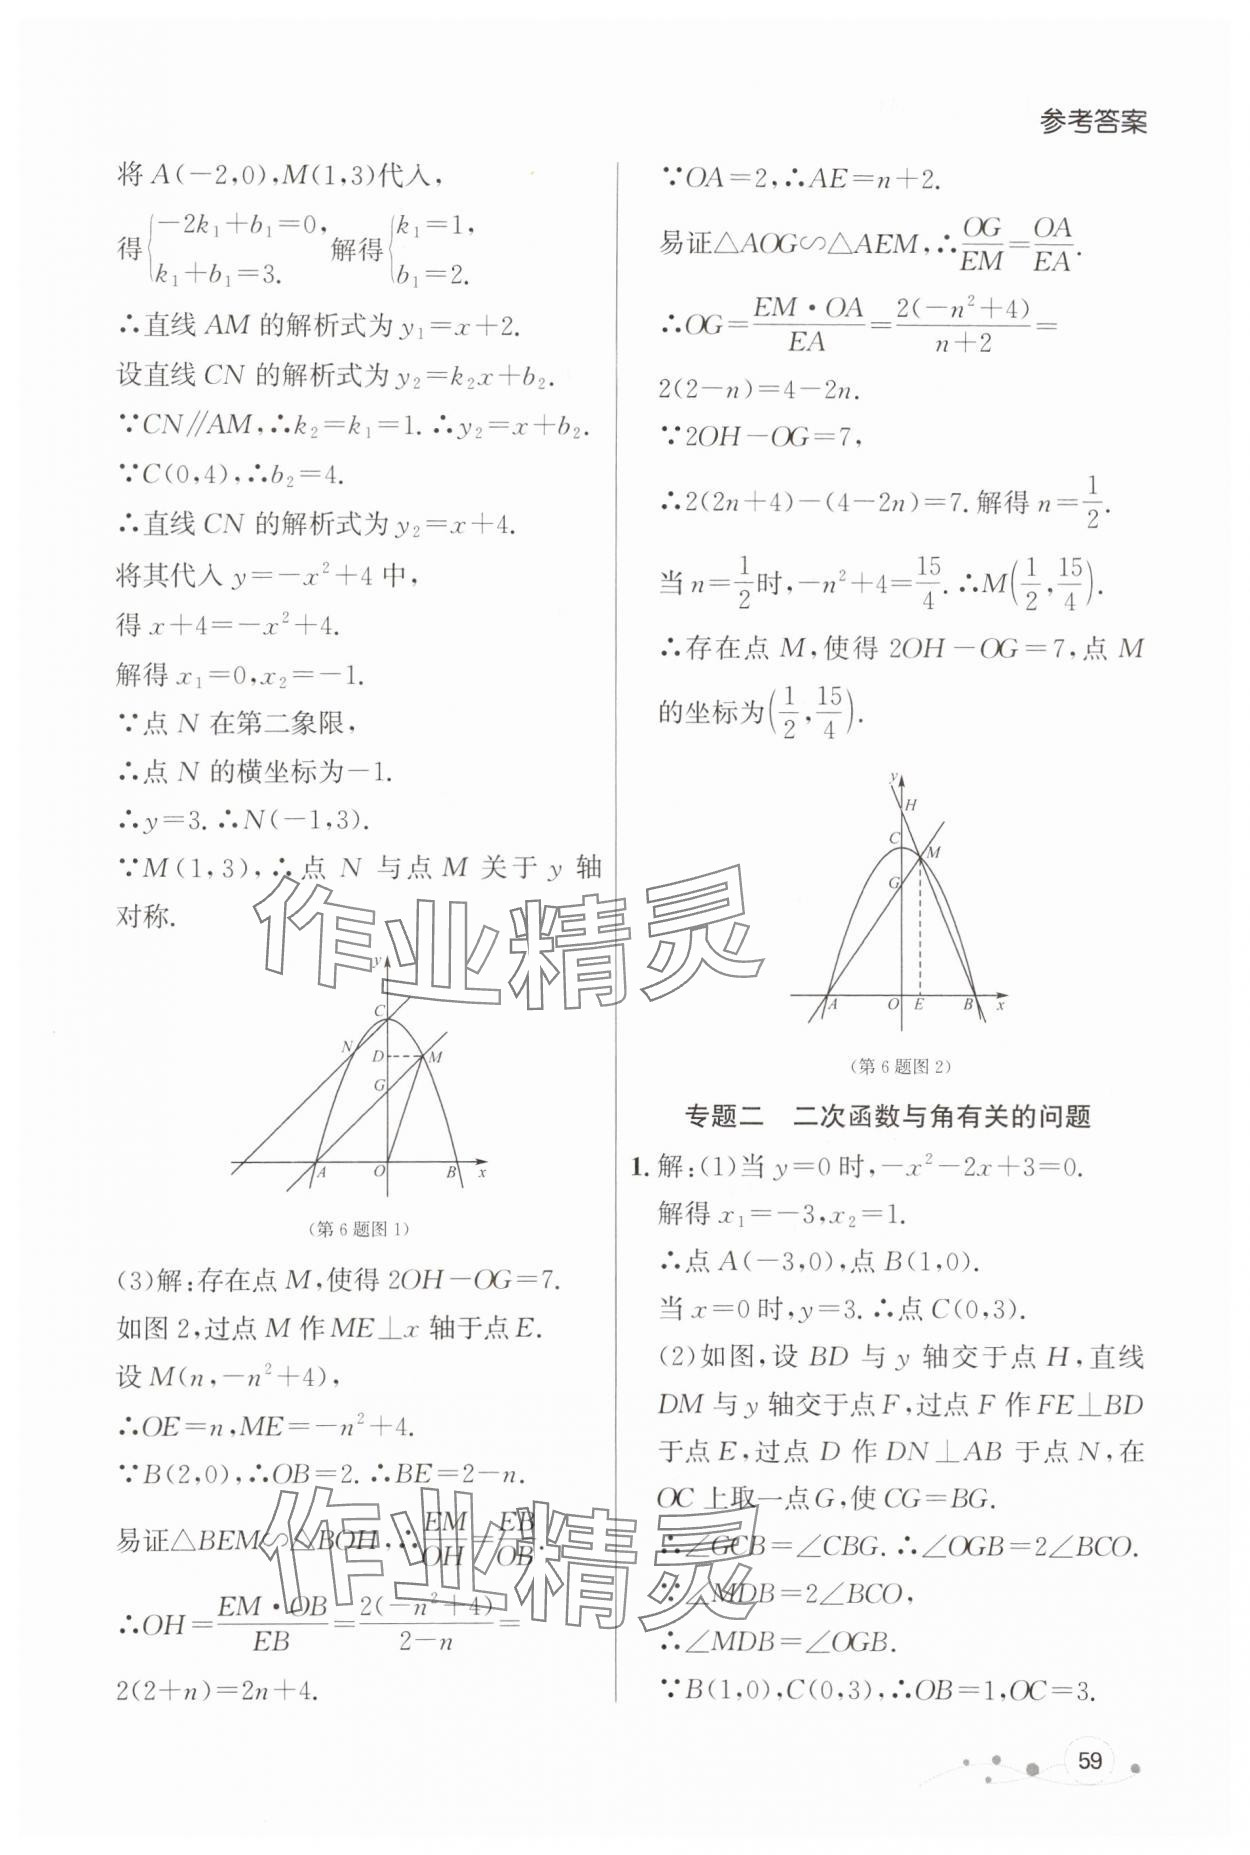 参考答案
将 A(-2,0),M(1,3)代入,
得{-2k₁+b₁=0, k₁+b₁=3. 解得{k₁=1, b₁=2.
∴直线 AM 的解析式为 y₁=x+2.
设直线 CN 的解析式为 y₂=k₂x+b₂.
∵CN∥AM,∴k₂=k₁=1. ∴y₂=x+b₂.
∵C(0,4),∴b₂=4.
∴直线 CN 的解析式为 y₂=x+4.
将其代入 y=-x²+4 中,
得 x+4=-x²+4.
解得 x₁=0,x₂=-1.
∵点 N 在第二象限,
∴点 N 的横坐标为-1.
∴y=3. ∴N(-1,3).
∵M(1,3),∴点 N 与点 M 关于 y 轴
对称.
y
C
N
D
M
G
A
O
B
x
(第 6 题图 1)
(3)解:存在点 M,使得 2OH-OG=7.
如图 2,过点 M 作 ME⊥x 轴于点 E.
设 M(n,-n²+4),
∴OE=n,ME=-n²+4.
∵B(2,0),∴OB=2. ∴BE=2-n.
易证△BEM∽△BOH,∴EM/OH=EB/OB.
∴OH=EM·OB/EB=2(-n²+4)/2-n=
2(2+n)=2n+4.
∵OA=2,∴AE=n+2.
易证△AOG∽△AEM,∴OG/EM=OA/EA.
∴OG=EM·OA/EA=2(-n²+4)/n+2=
2(2-n)=4-2n.
∵2OH-OG=7,
∴2(2n+4)-(4-2n)=7. 解得 n=1/2.
当 n=1/2时,-n²+4=15/4. ∴M(1/2,15/4).
∴存在点 M,使得 2OH-OG=7,点 M
的坐标为(1/2,15/4).
y
H
C
M
G
A
O
E
B
x
(第 6 题图 2)
专题二 二次函数与角有关的问题
1. 解:(1)当 y=0 时,-x²-2x+3=0.
解得 x₁=-3,x₂=1.
∴点 A(-3,0),点 B(1,0).
当 x=0 时,y=3. ∴点 C(0,3).
(2)如图,设 BD 与 y 轴交于点 H,直线
DM 与 y 轴交于点 F,过点 F 作 FE⊥BD
于点 E,过点 D 作 DN⊥AB 于点 N,在
OC 上取一点 G,使 CG=BG.
∴∠GCB=∠CBG. ∴∠OGB=2∠BCO.
∵∠MDB=2∠BCO,
∴∠MDB=∠OGB.
∵B(1,0),C(0,3),∴OB=1,OC=3.
作业精灵
作业精灵
59